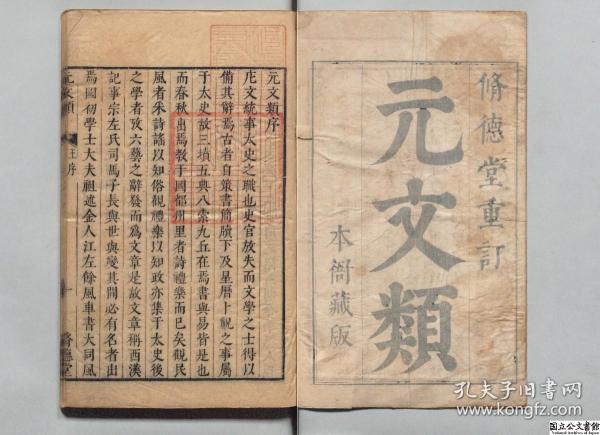 脩德堂重訂
元文類
本衙藏版
元文類序
庀文統事太史之職也史官放失而文學之士得以
備其辭焉古者自策書簡牘下及星曆卜祝之事屬
于太史故三墳五典八索九丘在焉書與易皆是也
而春秋出焉教于國都州里者詩禮樂而已矣觀民
風者采詩謠以知俗觀禮樂以知政亦集于太史後
之學者攷六藝之辭發而爲文章是故文章稱西漢
記事宗左氏司馬子長與世與變其間必有名者出
焉國初學士大夫祖述金人江左餘風車書大同風
元文類
王序
一
脩德堂
孔夫子旧书网
www.kongfz.com
国立公文書館
National Archives of Japan